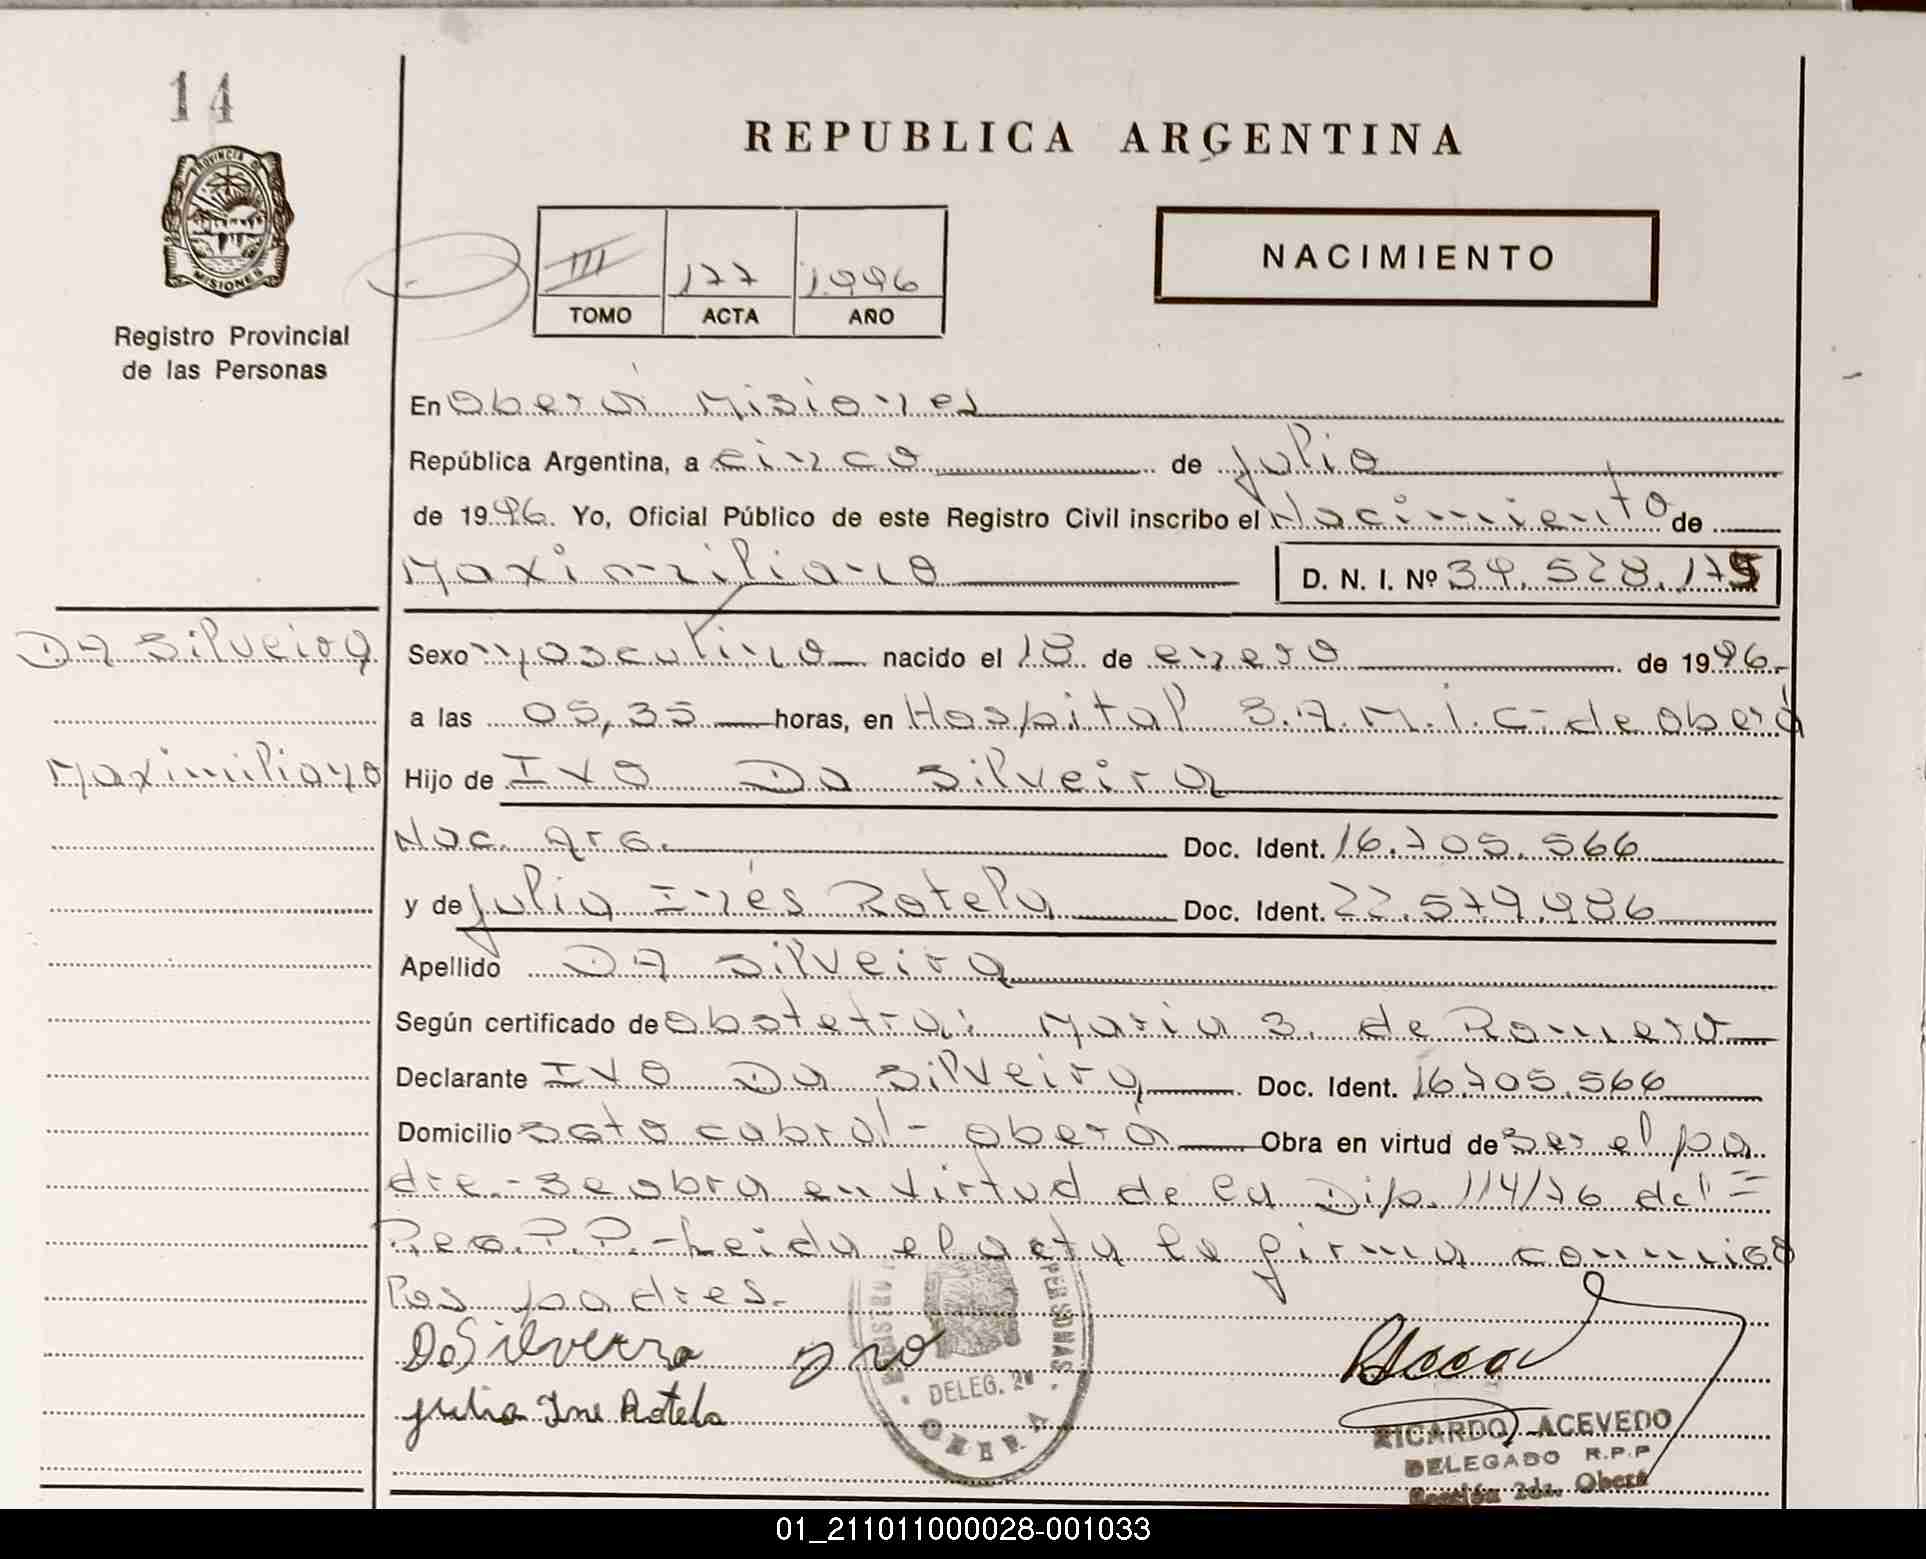 14
PROVINCIA DE
MISIONES
Registro Provincial
de las Personas
REPUBLICA ARGENTINA
III 177 1.996
TOMO ACTA AÑO
NACIMIENTO
En Oberá Misiones
República Argentina, a cinco de Julio
de 1996. Yo, Oficial Público de este Registro Civil inscribo el Nacimiento de
Maximiliano D. N. I. Nº 39.528.175
Da Silveira
Sexo Masculino nacido el 18 de enero de 1996.
a las 05,35 horas, en Hospital S.A.M.I.C- de Oberá
Maximiliano
Hijo de Ivo Da Silveira
Nac. Arg. Doc. Ident. 16.705.566
y de Julia Inés Rotela Doc. Ident. 22.579.986
Apellido DA Silveira
Según certificado de Obstetra: Maria S. de Romero
Declarante Ivo Da Silveira Doc. Ident. 16.705.566
Domicilio Sgto Cabral - Oberá Obra en virtud de ser el pa
dre.- Se obra en virtud de la Disp. 114/76 del =
Reg.P.P.- Leida el acta la firma conmigo
los padres.
Da Silveira Ivo
Julia Ine Rotela
PERSONAS
DELEG. 2ª
OBERA
RICARDO ACEVEDO
DELEGADO R.P.P
Sección 2da. Oberá
01_211011000028-001033